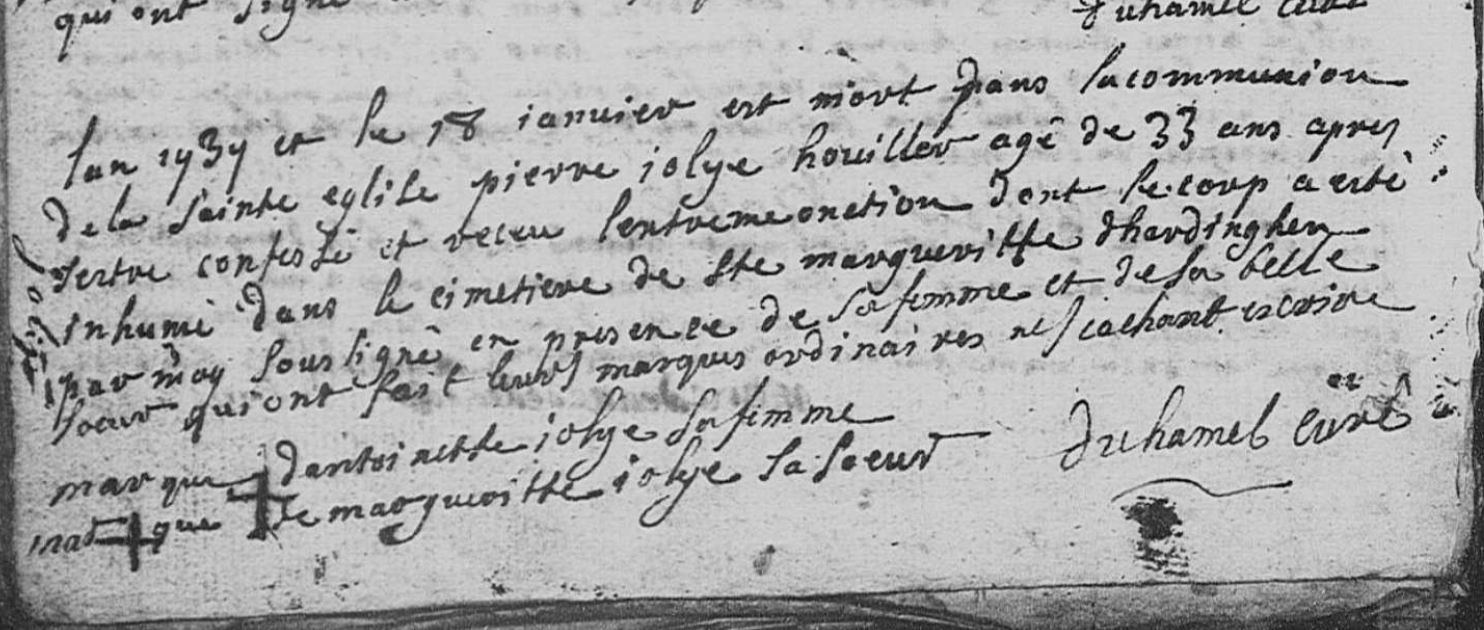 qui ont signé
duhamel curé
lan 1737 et le 18 ianvier est mort dans la communion
de la sainte eglise pierre iolye houiller agé de 33 ans apres
sertre confessé et receu lentreme onction dont le corp a esté
inhumé dans le cimetiere de ste margueritte dhardinghen
par moy soussigné en presence de sa femme et de sa belle
soeur qui ont fait leurs marques ordinaires ne scachant escrire
marque dantoinette iolye sa femme
marque de margueritte iolye sa soeur
duhamel curé